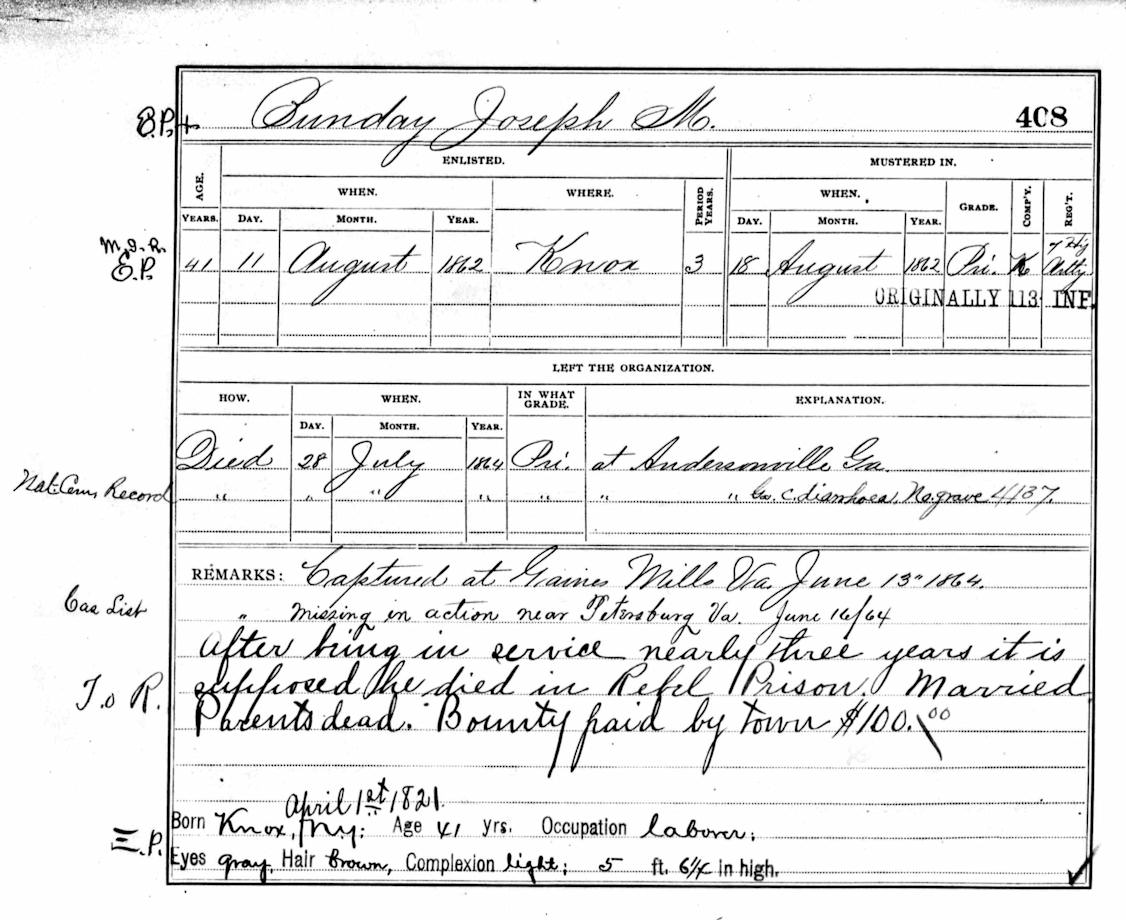 B.P.+ Bunday Joseph M. 408
ENLISTED. MUSTERED IN.
AGE. WHEN. WHERE. PERIOD YEARS. WHEN. GRADE. COMP'Y. REG'T.
YEARS. DAY. MONTH. YEAR. DAY. MONTH. YEAR.
M.I.R.
E.P. 41 11 August 1862 Knox 3 18 August 1862 Pri. K 7 Hy Arty
ORIGINALLY 113 INF.
LEFT THE ORGANIZATION.
HOW. WHEN. IN WHAT GRADE. EXPLANATION.
DAY. MONTH. YEAR.
Died 28 July 1864 Pri. at Andersonville Ga.
Nat. Cem. Record " " " " " " " Ga. c. diarrhoea, No. grave 4137.
REMARKS: Captured at Gaines Mills Va. June 13" 1864.
Cas List " Missing in action near Petersburg Va. June 16/64
After being in service nearly three years it is
T. o R. supposed he died in Rebel Prison. Married
Parents dead. Bounty paid by town $100.00
April 1st 1821.
Born Knox, N.Y.: Age 41 yrs. Occupation laborer;
E.P. Eyes gray, Hair brown, Complexion light; 5 ft. 6 1/4 in high.